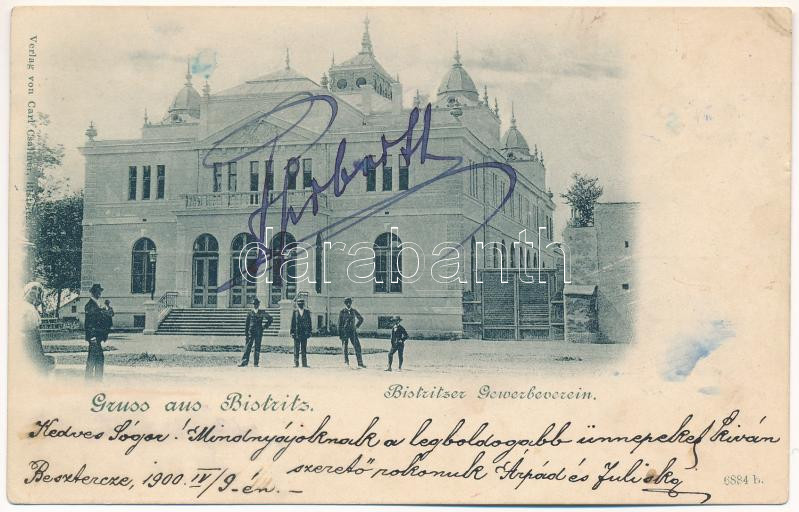 Verlag von Carl Csallner, Bistritz
Gruss aus Bistritz.
Bistritzer Gewerbeverein.
darabanth
Kedves Sógor! Mindnyájoknak a legboldogabb ünnepeket kíván
szerető rokonuk Árpád és Juliska
Besztercze, 1900. IV/9-én.-
6884 b.